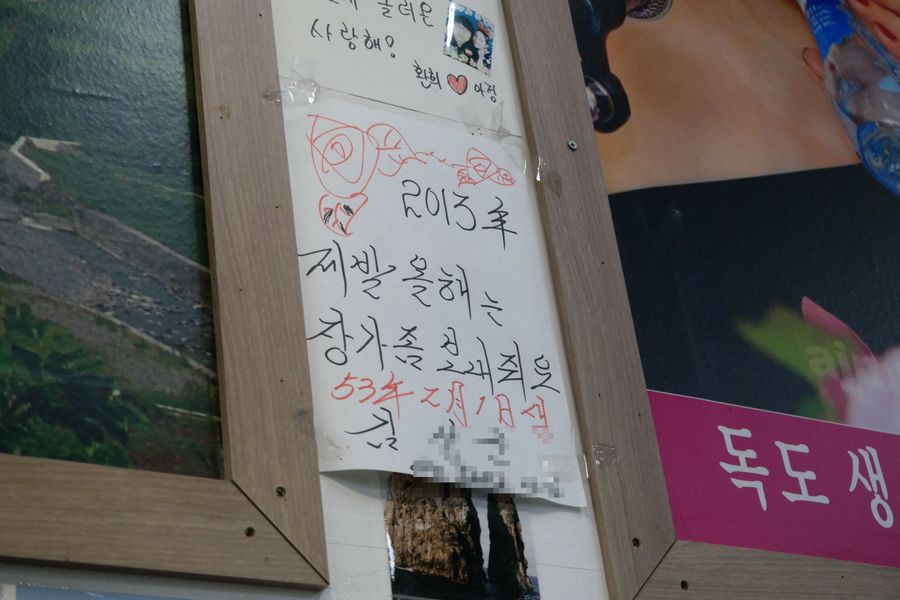 사랑해!
환희 ♥ 아정
2013年
제발 올해는
장가좀 보내줘요
53年 2月 1日生
김
독도생